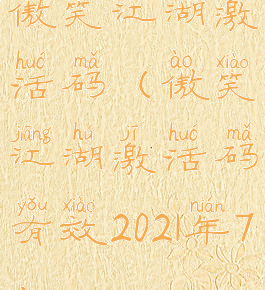 傲笑江湖激
huó mǎ ào xiào
活码（傲笑
jiāng hú jī huó mǎ
江湖激活码
yǒu xiào nián
有效2021年7